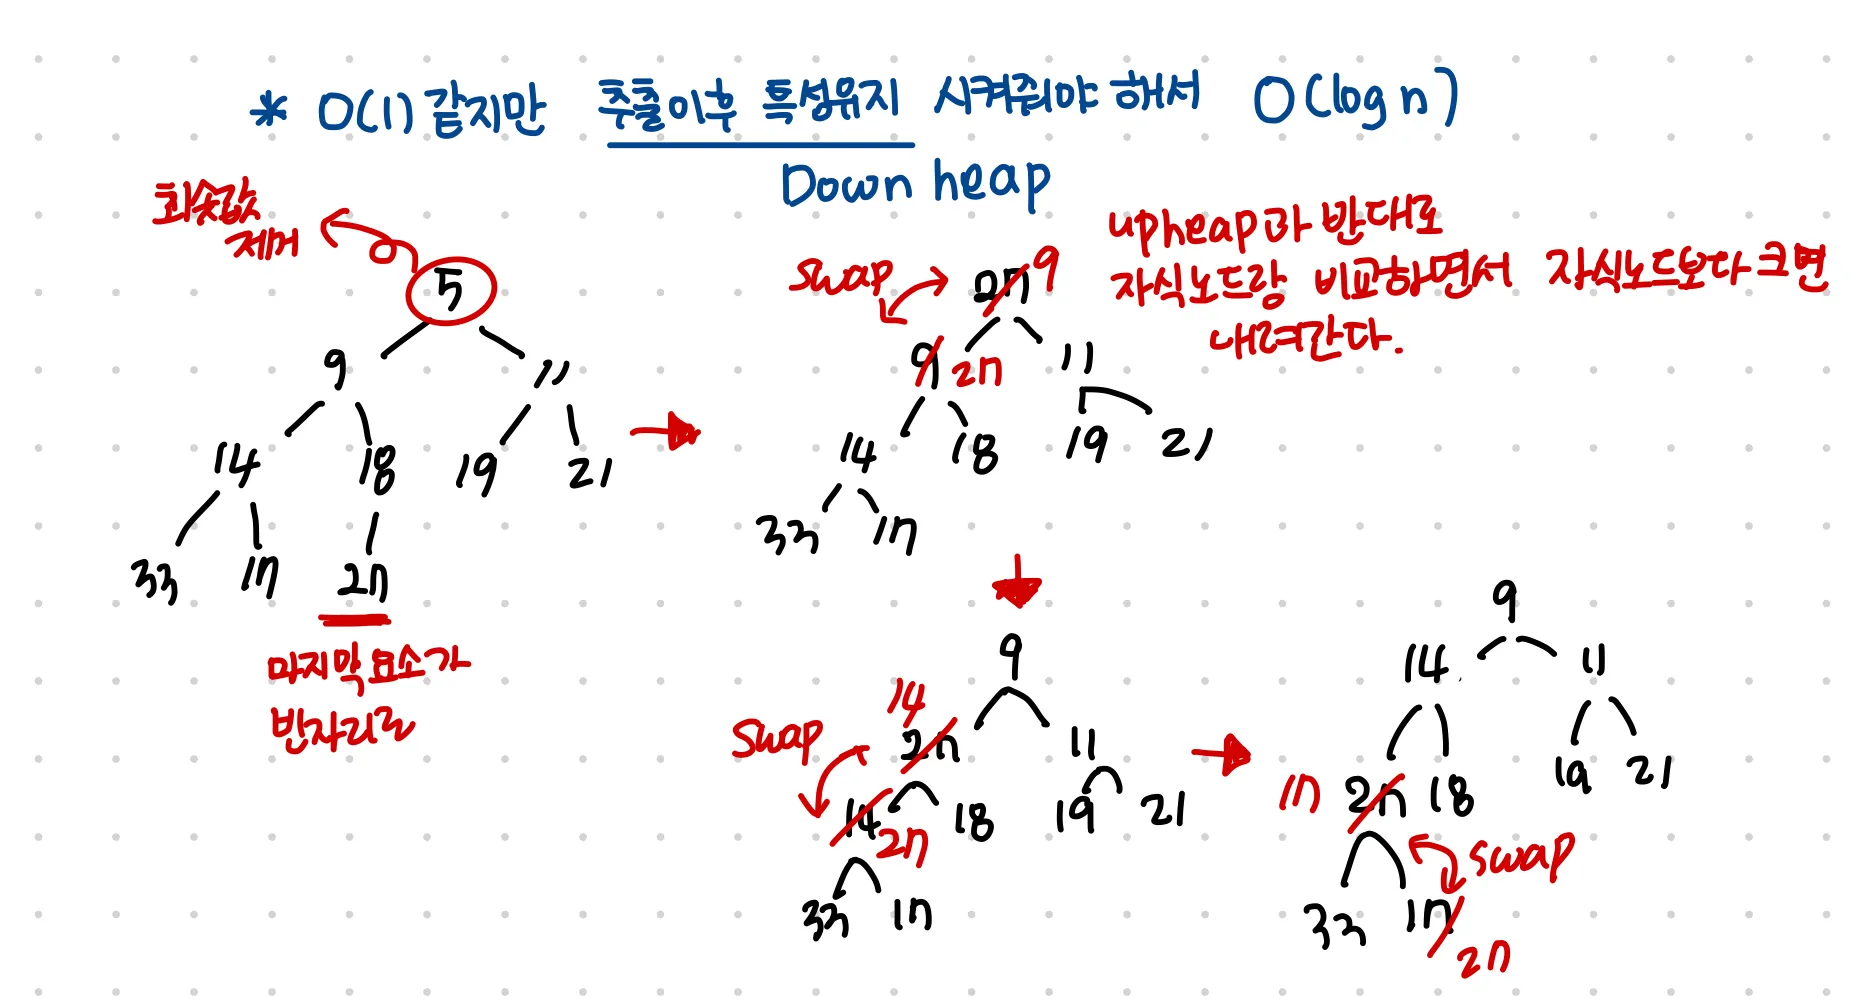 * O(1) 같지만 추출이후 특성유지 시켜줘야 해서 O(log n)
Down heap
최솟값
제거
5
9 11
14 18 19 21
33 17 27
마지막 요소가
빈자리로
upheap과 반대로
자식노드랑 비교하면서 자식노드보다 크면
내려간다.
swap 27 9
9 27 11
14 18 19 21
33 17
9
14
swap 27 11
14 27 18 19 21
33 17
9
14 11
17 27 18 19 21
swap
33 17 27